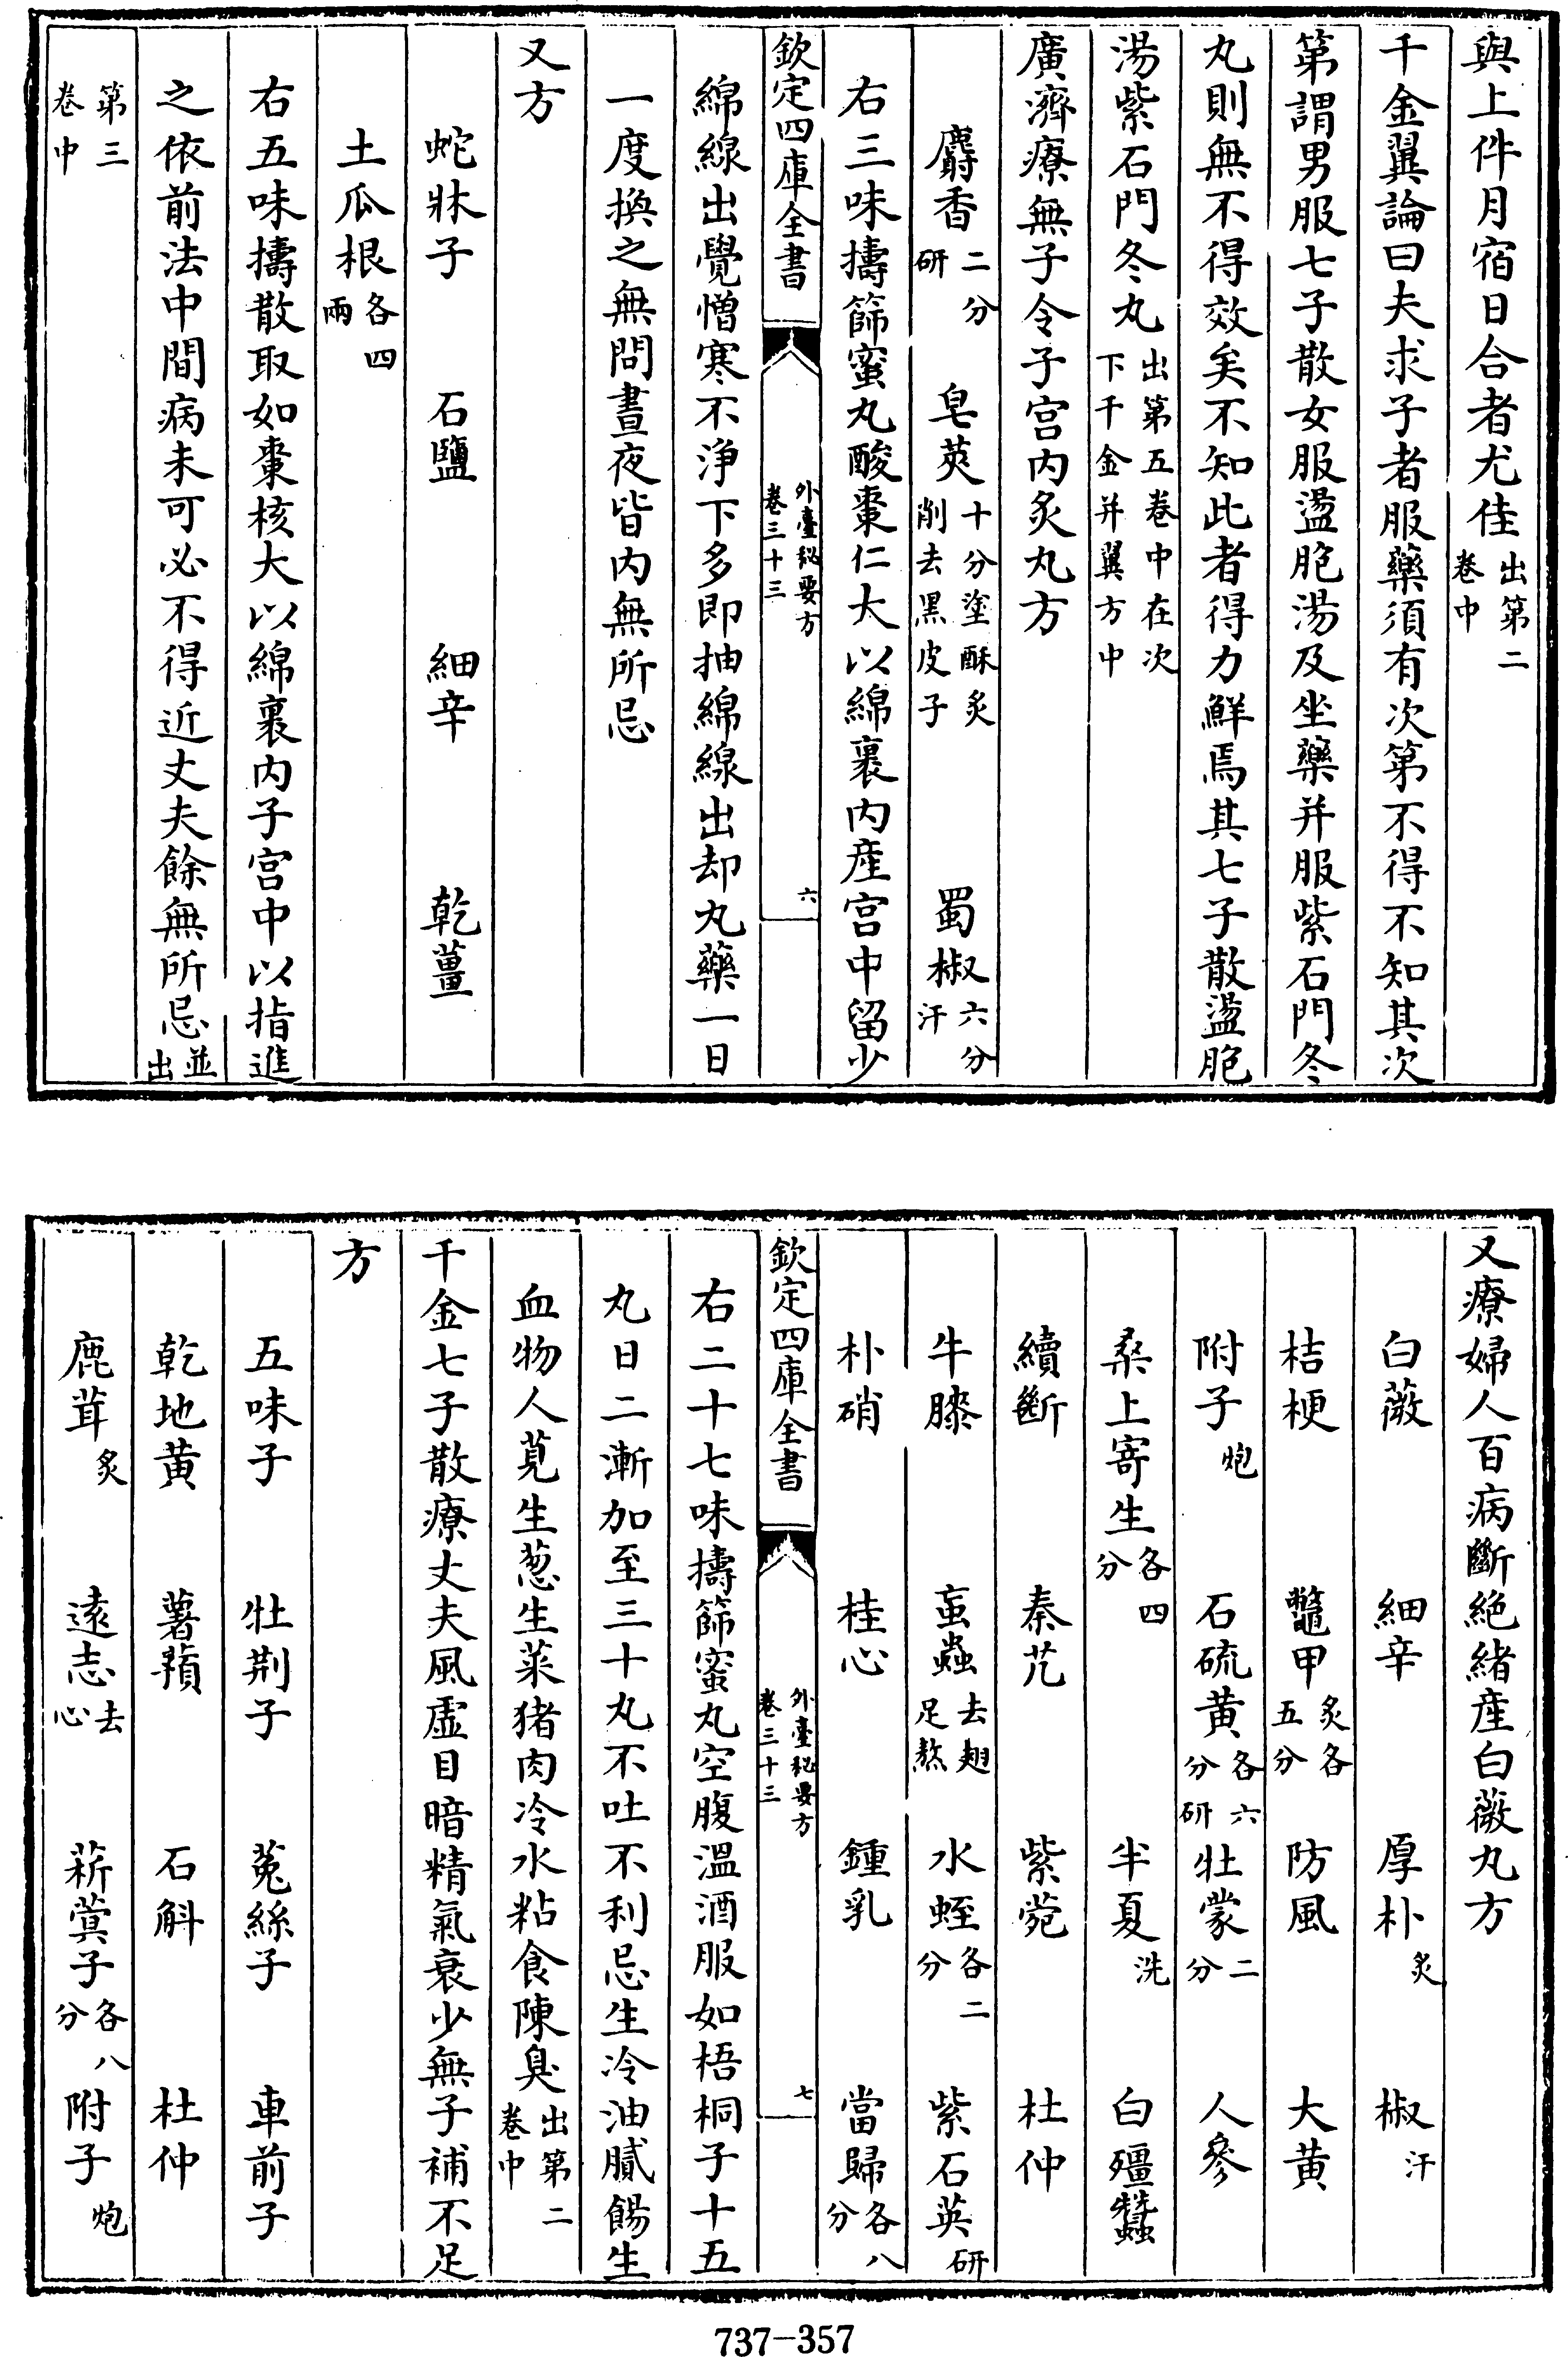 與上件月宿日合者尤佳出第二卷中
千金翼論曰夫求子者服藥須有次第不得不知其次
第謂男服七子散女服盪胞湯及坐藥并服紫石門冬
丸則無不得效矣不知此者得力鮮焉其七子散盪胞
湯紫石門冬丸出第五卷中在次下千金并翼方中
廣濟療無子令子宫内炙丸方
麝香二分研 皂莢十分塗酥炙削去黑皮子 蜀椒六分汗
右三味擣篩蜜丸酸棗仁大以綿裹内産宫中留少
欽定四庫全書 外臺秘要方卷三十三 六
綿線出覺憎寒不淨下多即抽綿線出却丸藥一日
一度換之無問晝夜皆内無所忌
又方
蛇牀子 石鹽 細辛 乾薑
土瓜根各四兩
右五味擣散取如棗核大以綿裹内子宫中以指進
之依前法中間病未可必不得近丈夫餘無所忌並出
第三卷中
又療婦人百病斷絶緒産白薇丸方
白薇 細辛 厚朴炙 椒汗
桔梗 鼈甲炙各五分 防風 大黄
附子炮 石硫黄各六分研 牡蒙二分 人參
桑上寄生各四分 半夏洗 白殭蠶
續斷 秦艽 紫菀 杜仲
牛膝 䖟蟲去翅足熬 水蛭各二分 紫石英研
朴硝 桂心 鍾乳 當歸各八分
欽定四庫全書 外臺秘要方卷三十三 七
右二十七味擣篩蜜丸空腹溫酒服如梧桐子十五
丸日二漸加至三十丸不吐不利忌生冷油膩餳生
血物人莧生葱生菜猪肉冷水粘食陳臭出第二卷中
千金七子散療丈夫風虚目暗精氣衰少無子補不足
方
五味子 牡荆子 菟絲子 車前子
乾地黄 薯蕷 石斛 杜仲
鹿茸炙 逺志去心 菥蓂子各八分 附子炮
737-357